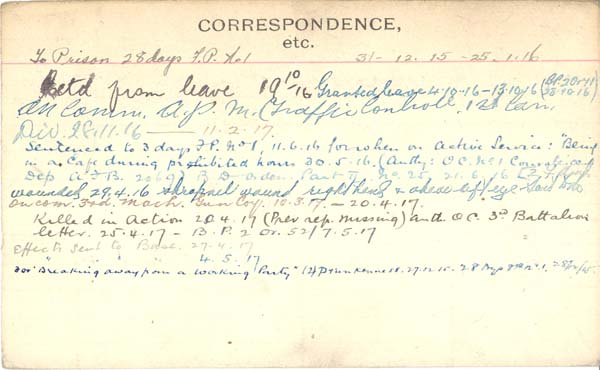 CORRESPONDENCE,
etc.
To Prison 28 days F.P. No 1 31- 12. 15 -25. 1. 16
Retd from leave 19 10/16 Granted leave 4-10-16-13-10-16 (B.P. 20r41 28-10-16)
On Comm. A.P.M. (Traffic Control 1st Can.
Div. 28.11.16 — 11.2.17.
Sentenced to 3 days F.P. No 1, 11.6.16 for when on Active Service: "Being
in a Cafe during prohibited hours 30.5.16. (Authy: O.C. No 1
Dep A.F. B. 2069) B.D. Orders. Part II No. 25, 21.6.16
wounded 29.4.16 shrapnel wound right thigh & above left eye
On com. 3rd. Mach. Gun Coy. 10.3.17. — 20.4.17.
Killed in Action 20.4.17 (Prev rep. missing) auth O.C. 3rd Battalion
letter. 25.4.17 - B.P. 2 Or. 52/7.5.17
Effects sent to Base. 27.4.17
" " " " 4.5.17
for "Breaking away from a Working Party" 27.12.15. 28 Days No. 1.